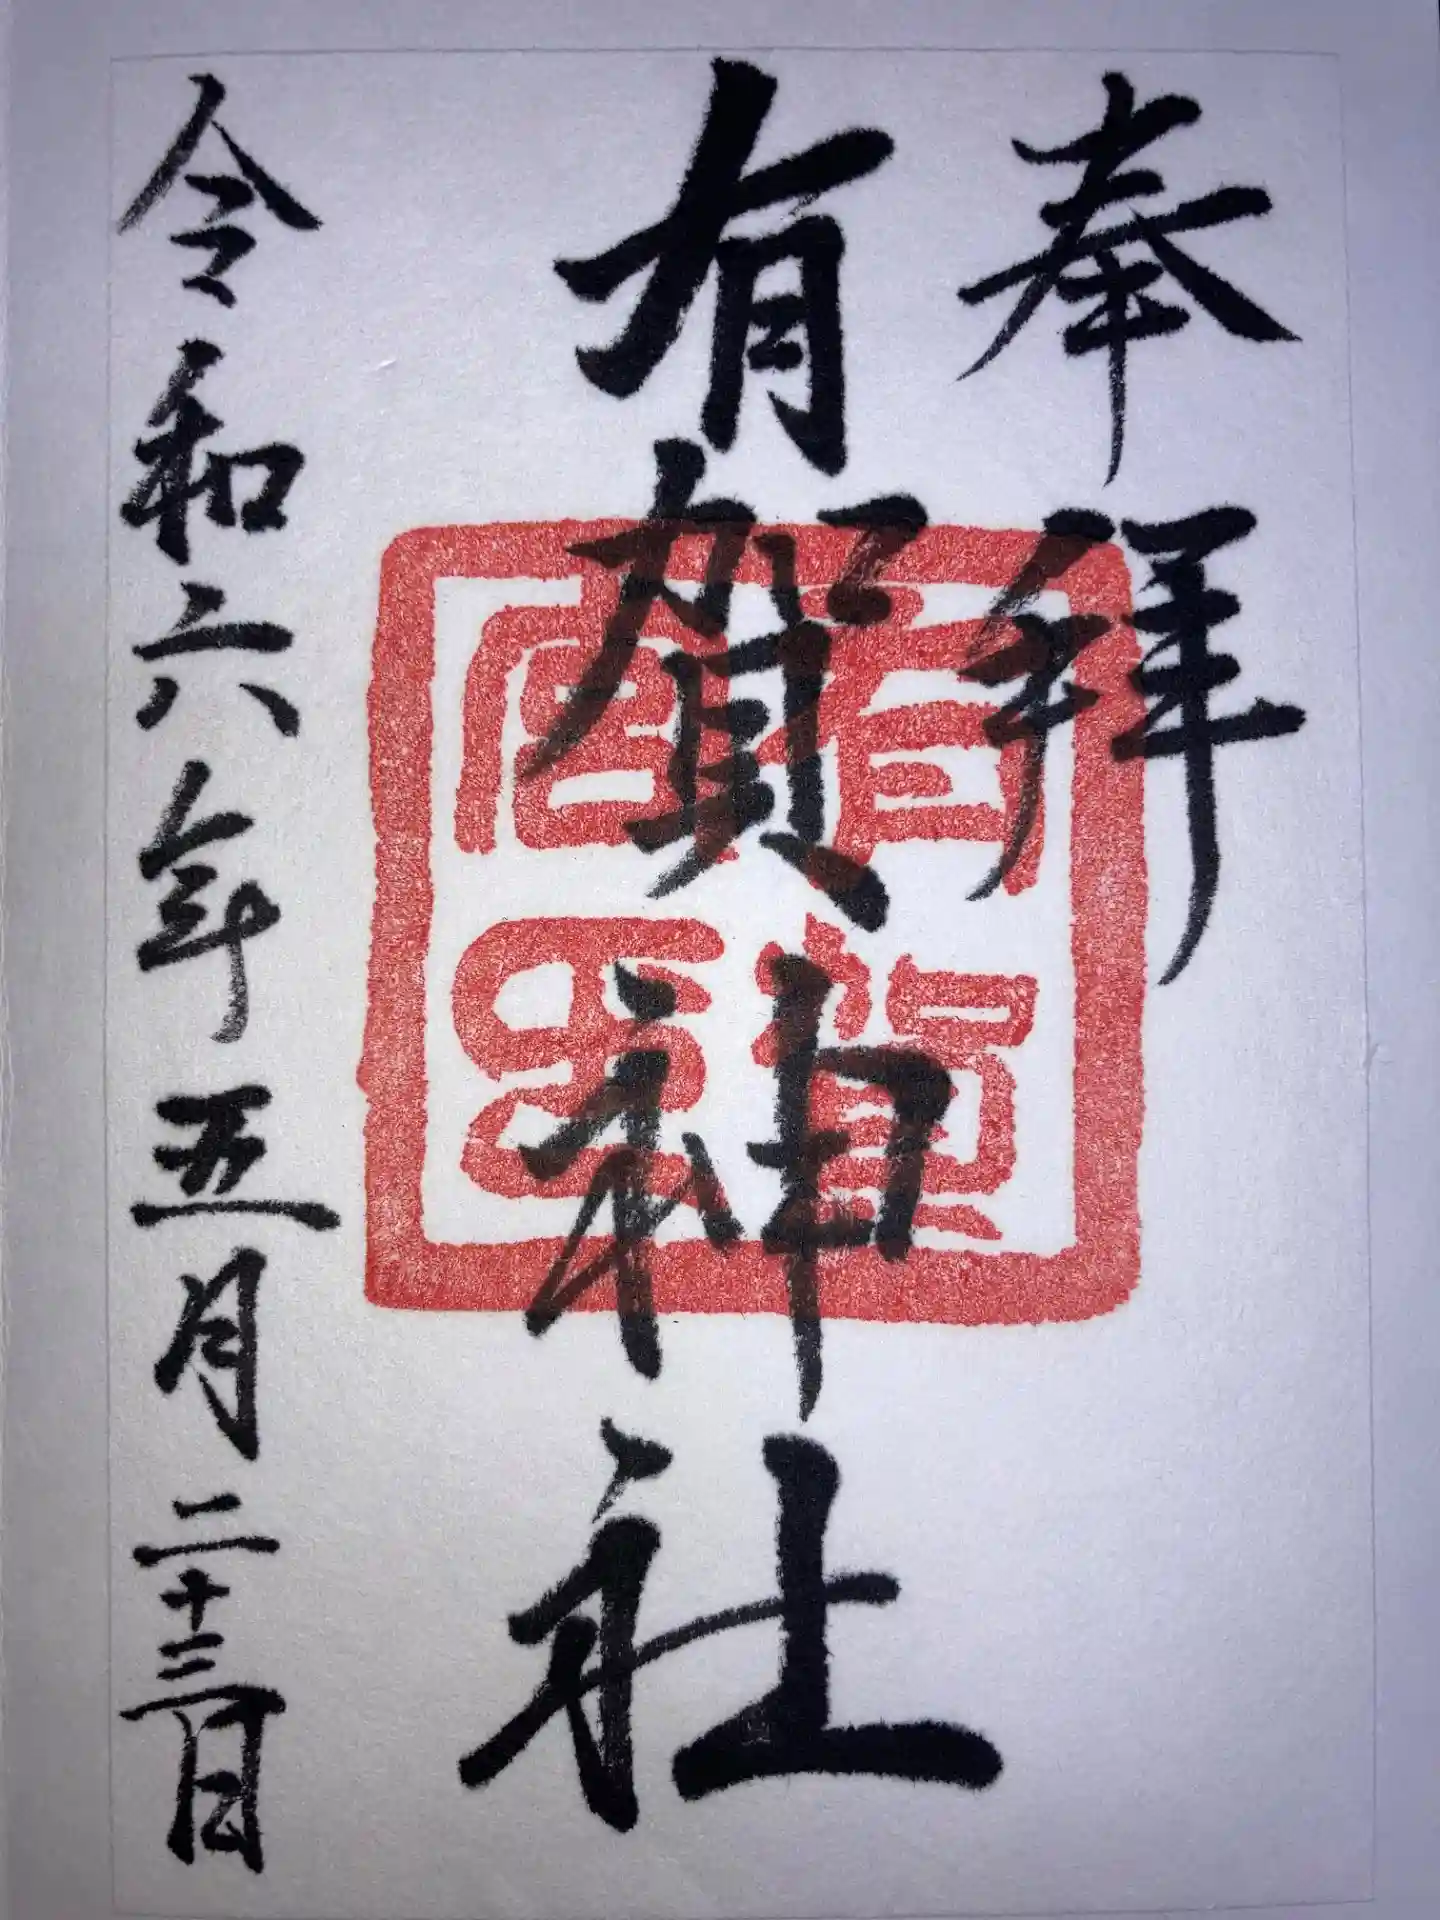 奉拝
有賀神社
有賀宮印
令和六年五月二十三日